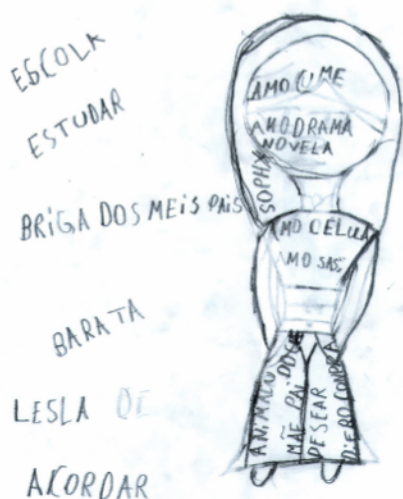 ESCOLA
ESTUDAR
BRIGA DOS MEIS PAIS
BARATA
LESLA DE
ACORDAR
AMO
AMO DRAMA
NOVELA
SOPHX
MO CELULA
MO SAS
ANIMACU
MÃE PAI DOG
DESEAR